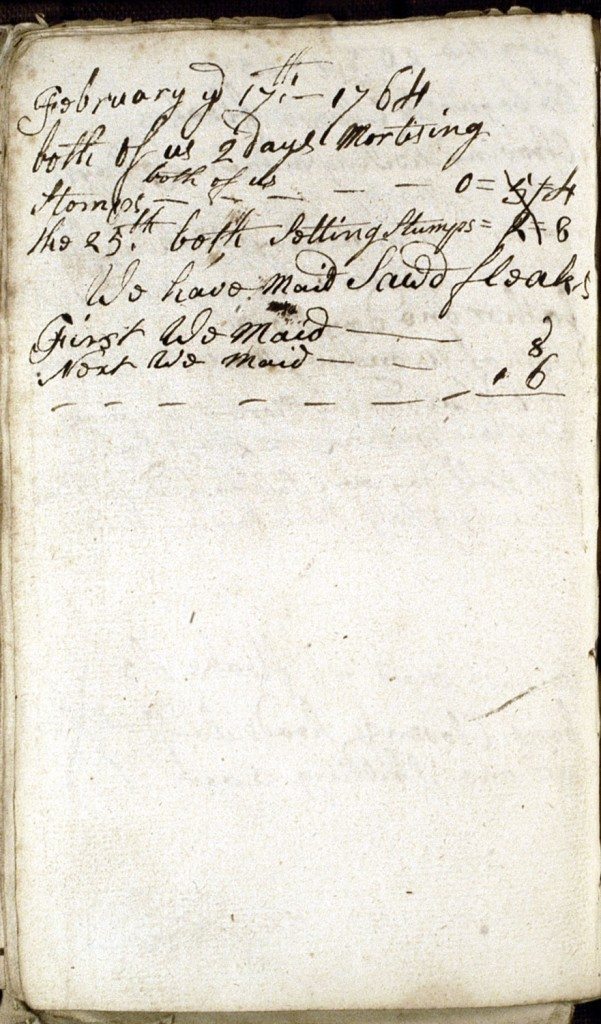 February yd 17th. – 1764
both of us 2 days Mortising
both of us
Stomps – – – – – – 0 = 5 + 4
the 25th. both Setting Stumps = 2 = 8
We have Maid Sawd fleaks
First We Maid —— 8
Next We Maid – — . 6